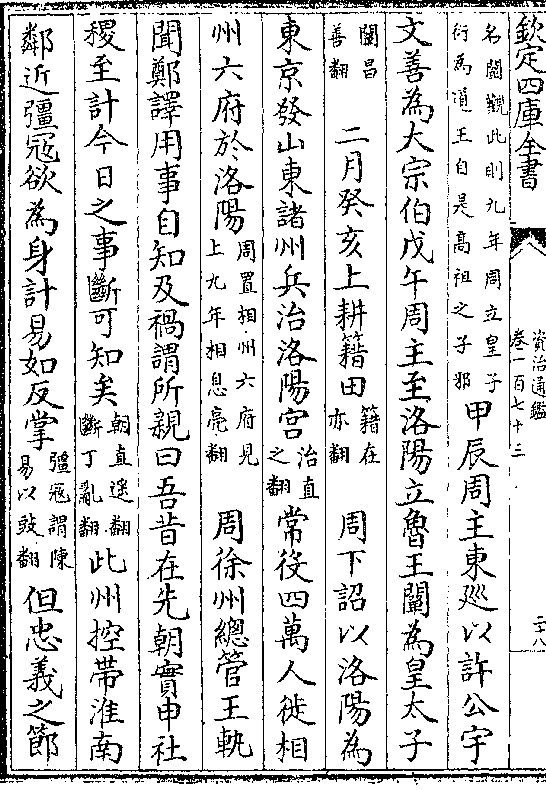 欽定四庫全書
資治通鑑
卷一百七十三
二十八
名闡觀此則九年周立皇子
衍為道王自是高祖之子邪
甲辰周主東廵以許公宇
文善為大宗伯戊午周主至洛陽立魯王闡為皇太子
闡昌
善翻
二月癸亥上耕籍田
籍在
亦翻
周下詔以洛陽為
東京發山東諸州兵治洛陽宮
治直
之翻
常役四萬人徙相
州六府於洛陽
周置相州六府見
上九年相息亮翻
周徐州總管王軌
聞鄭譯用事自知及禍謂所親曰吾昔在先朝實申社
稷至計今日之事斷可知矣
朝直遥翻
斷丁亂翻
此州控帶淮南
鄰近彊冦欲為身計易如反掌
彊冦謂陳
易以豉翻
但忠義之節